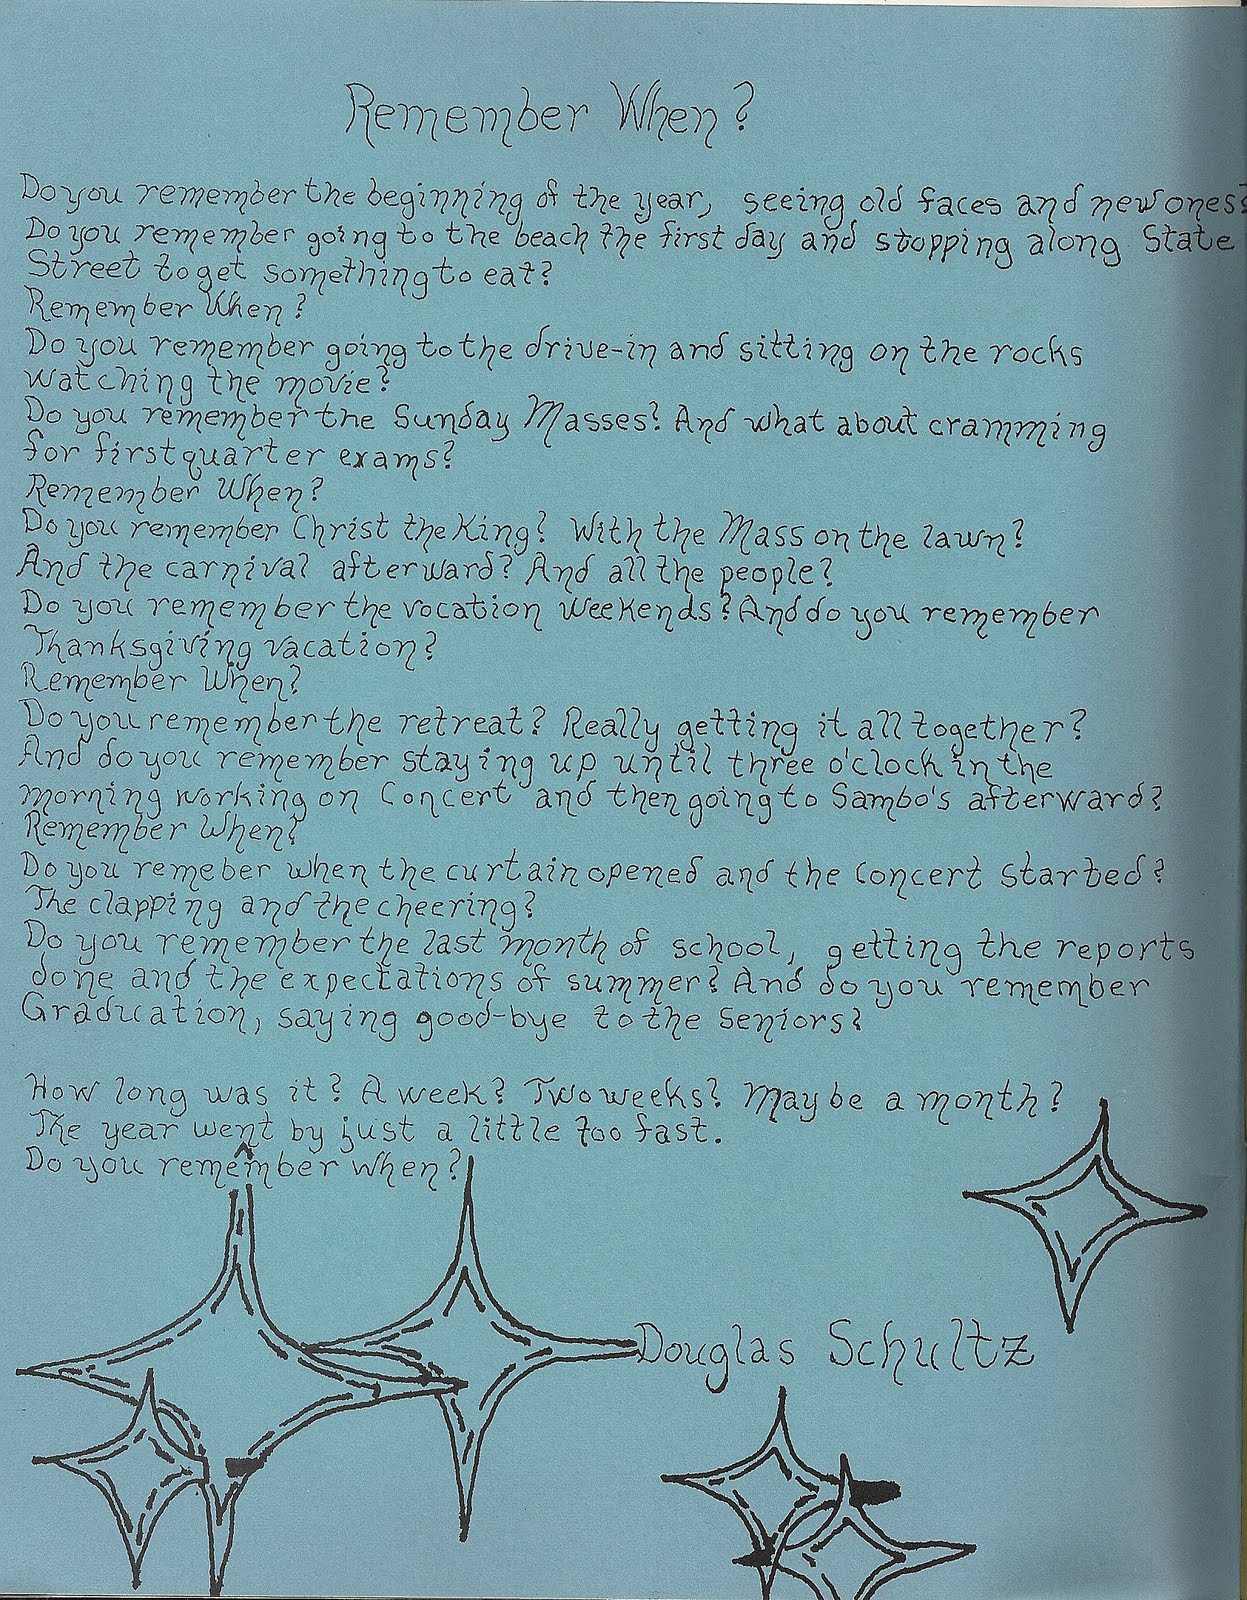 Remember When?
Do you remember the beginning of the year, seeing old faces and new ones?
Do you remember going to the beach the first day and stopping along State
Street to get something to eat?
Remember When?
Do you remember going to the drive-in and sitting on the rocks
watching the movie?
Do you remember the Sunday Masses? And what about cramming
for first quarter exams?
Remember When?
Do you remember Christ the King? With the Mass on the lawn?
And the carnival afterward? And all the people?
Do you remember the vocation weekends? And do you remember
Thanksgiving vacation?
Remember When?
Do you remember the retreat? Really getting it all together?
And do you remember staying up until three o'clock in the
morning working on Concert and then going to Sambo's afterward?
Remember When?
Do you remeber when the curtain opened and the Concert started?
The clapping and the cheering?
Do you remember the last month of school, getting the reports
done and the expectations of summer? And do you remember
Graduation, saying good-bye to the Seniors?
How long was it? A week? Two weeks? Maybe a month?
The year went by just a little too fast.
Do you remember when?
Douglas Schultz